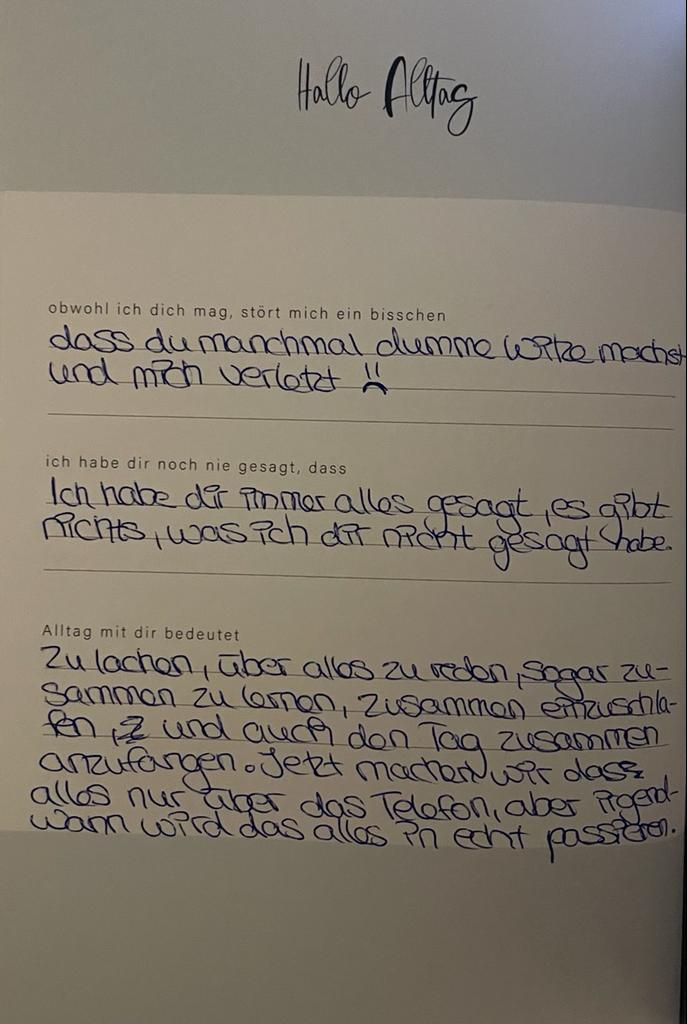 Hallo Alltag
obwohl ich dich mag, stört mich ein bisschen
dass du manchmal dumme Witze machst
und mich verletzt :(
ich habe dir noch nie gesagt, dass
Ich habe dir immer alles gesagt, es gibt
nichts, was ich dir nicht gesagt habe.
Alltag mit dir bedeutet
Zu lachen, über alles zu reden, sogar zu-
sammen zu lernen, zusammen einzuschla-
fen, und auch den Tag zusammen
anzufangen. Jetzt machen wir dass
alles nur über das Telefon, aber irgend-
wann wird das alles in echt passieren.